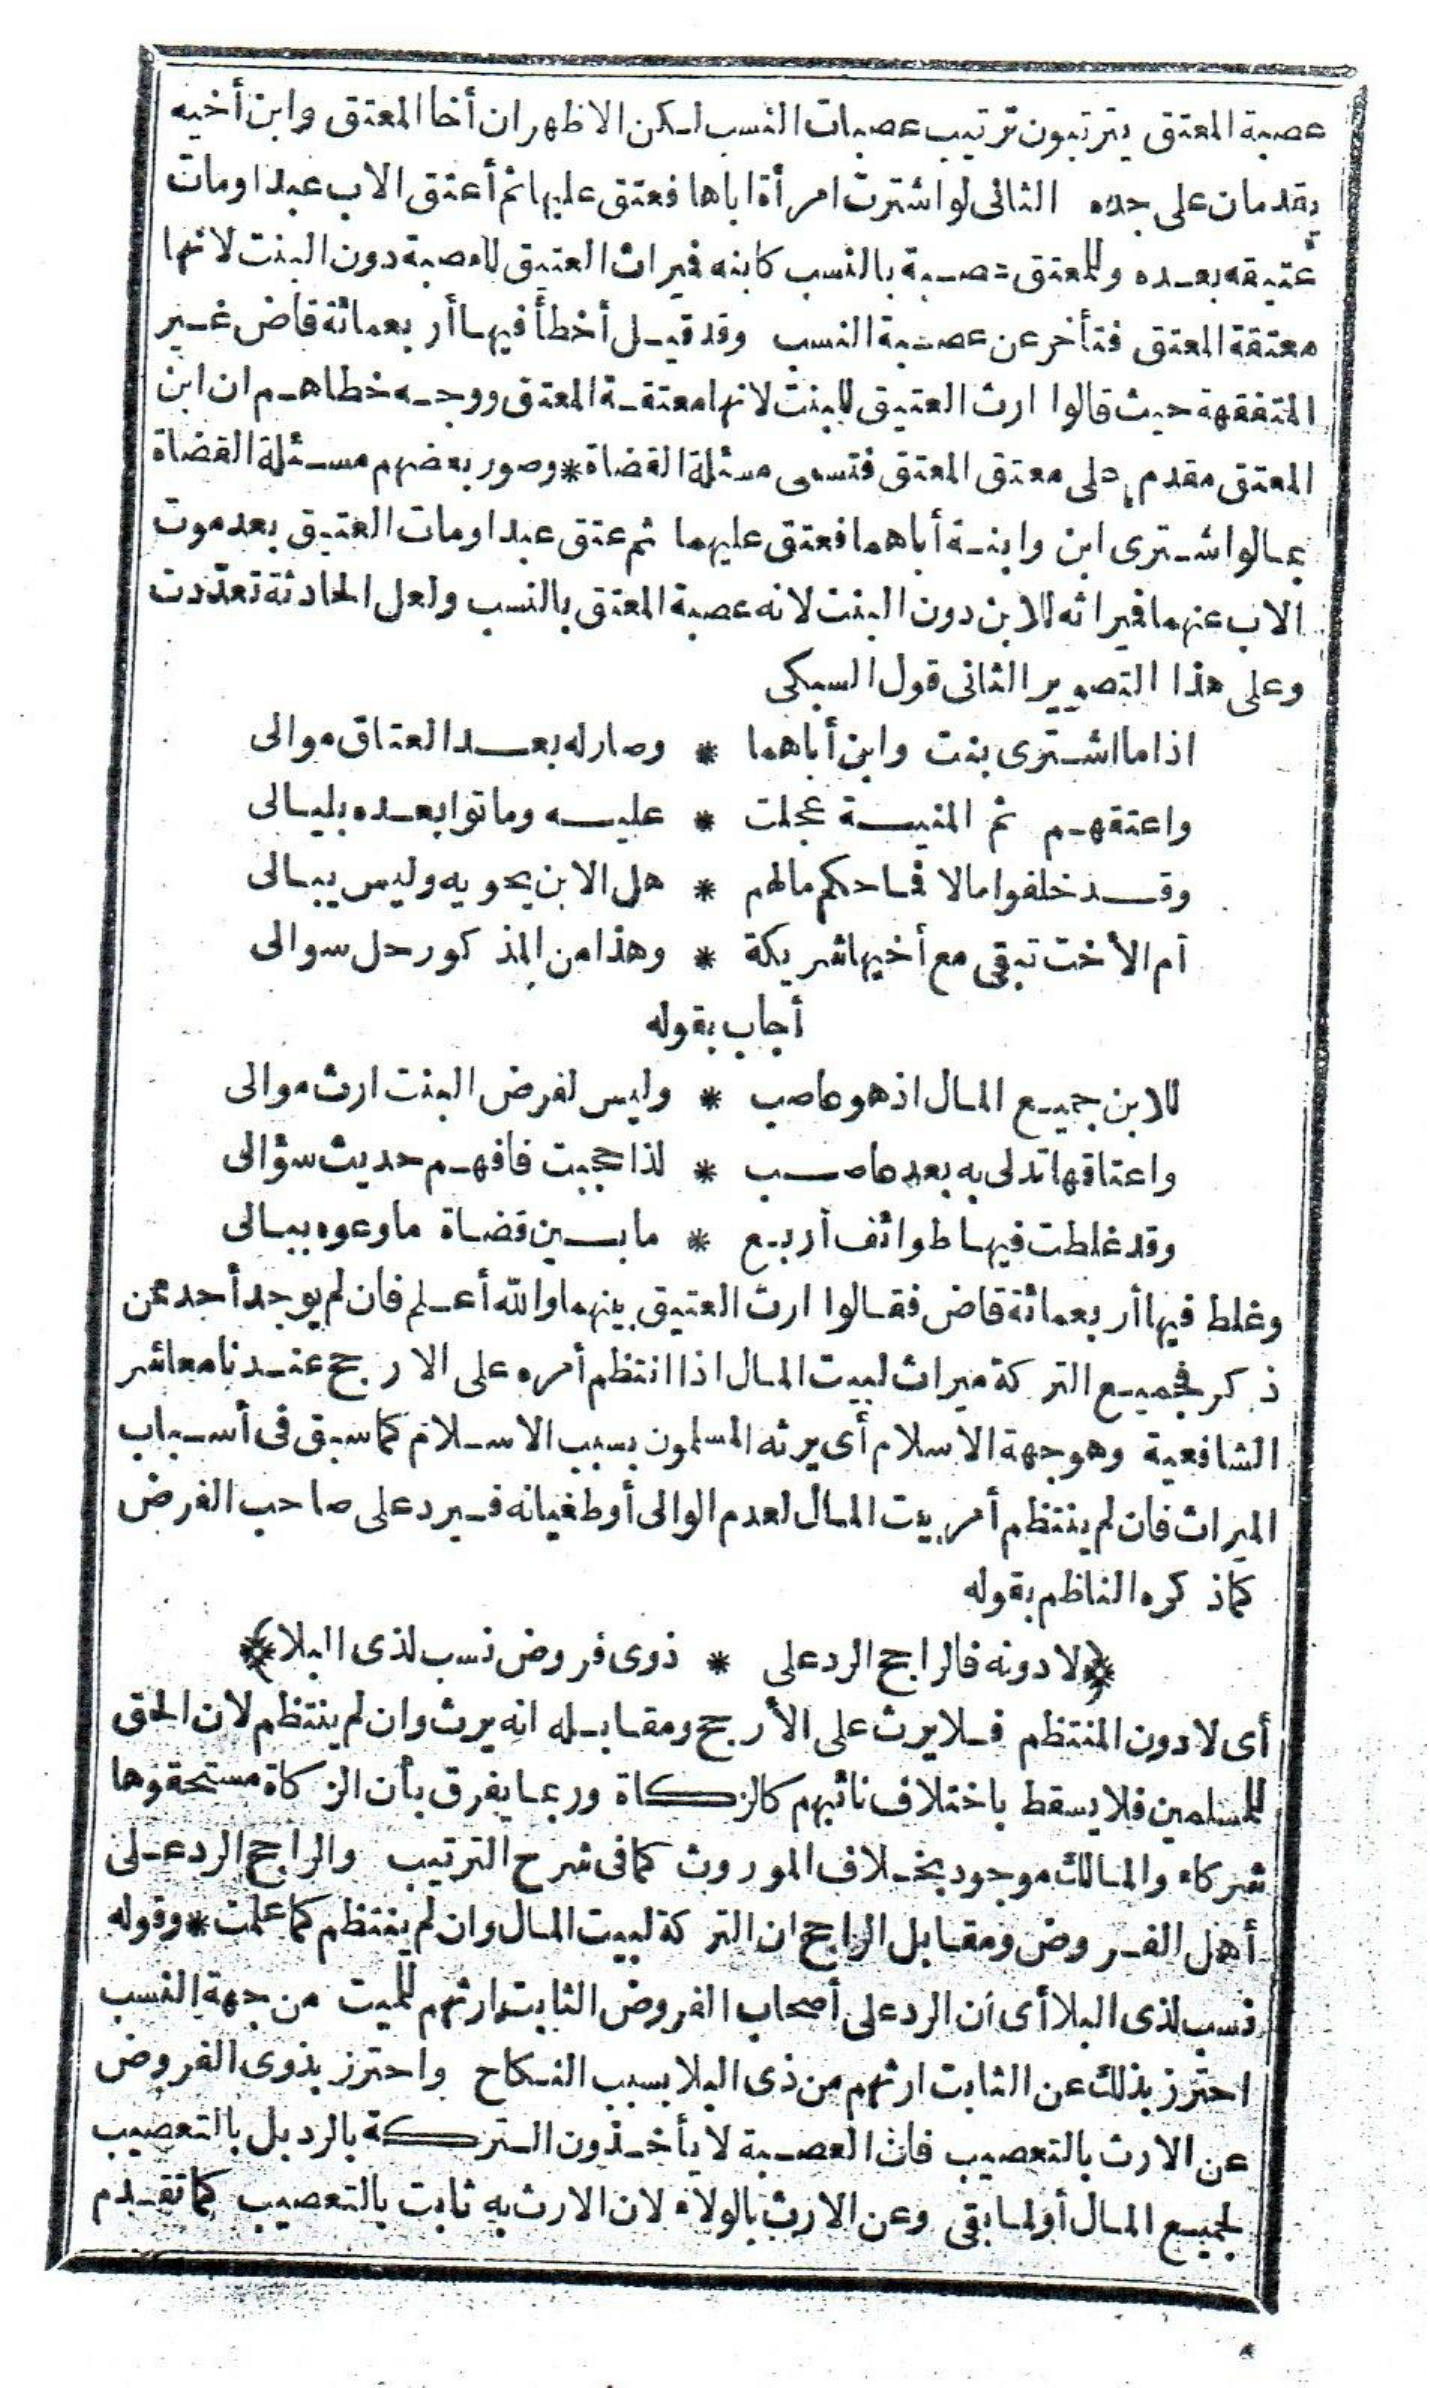 عصبة المعتق يترتبون ترتيب عصبات النسب لكن الاظهر ان أخا المعتق وابن أخيه
يقدمان على جده الثانى لو اشترت امرأة اباها فعتق عليها ثم أعتق الاب عبدا ومات
عتيقه بعده وللمعتق عصبة بالنسب كابنه فيراث العتيق للعصبة دون البنت لانها
معتقة المعتق فتأخر عن عصبة النسب وقد قيل أخطأ فيها أربعمائة قاض غير
المتفقهة حيث قالوا ارث العتيق للبنت لانها معتقة المعتق ووجه خطاهم ان ابن
المعتق مقدم على معتق المعتق فتسمى مسئلة القضاة * وصور بعضهم مسئلة القضاة
بما لو اشترى ابن وابنة أباهما فعتق عليهما ثم عتق عبدا ومات العتيق بعد موت
الاب عنهما فيراثه للابن دون البنت لانه عصبة المعتق بالنسب ولعل الحادثة تعددت
وعلى هذا التصوير الثانى قول السبكى
اذا ما اشترى بنت وابن أباهما * وصار له بعد العتاق موالى
واعتقهم ثم المنية عجلت * عليه وماتوا بعده بليالى
وقد خلفوا مالا فما حكم مالهم * هل الابن يحويه وليس يبالى
أم الأخت تبقى مع أخيها شريكة * وهذا من المذكور حل سوالى
أجاب بقوله
للابن جميع المال اذ هو عاصب * وليس لفرض البنت ارث موالى
واعتاقها تدلى به بعد عاصب * لذا حجبت فافهم حديث سؤالى
وقد غلطت فيها طوائف أربع * مابين قضاة ما وعوه ببالى
وغلط فيها أربعمائة قاض فقالوا ارث العتيق بينهما والله أعلم فان لم يوجد أحد ممن
ذكر فجميع التركة ميراث لبيت المال اذا انتظم أمره على الارجح عندنا معاشر
الشافعية وهو جهة الاسلام أى يرثه المسلمون بسبب الاسلام كما سبق فى أسباب
الميراث فان لم ينتظم أمر بيت المال لعدم الوالى أو طغيانه فيرد على صاحب الفرض
كما ذكره الناظم بقوله
﴿لا دونه فالراجح الرد على * ذوى فروض نسب لذى البلا﴾
أى لا دون المنتظم فلا يرث على الأرجح ومقابله انه يرث وان لم ينتظم لان الحق
للمسلمين فلا يسقط باختلاف نائبهم كالزكاة وربما يفرق بأن الزكاة مستحقوها
شركاء والمالك موجود بخلاف الموروث كما فى شرح الترتيب والراجح الرد على
أهل الفروض ومقابل الراجح ان التركة لبيت المال وان لم ينتظم كما علمت * وقوله
نسب لذى البلا أى ان الرد على أصحاب الفروض الثابت ارثهم للميت من جهة النسب
احترز بذلك عن الثابت ارثهم من ذى البلا بسبب النكاح واحترز بذوى الفروض
عن الارث بالتعصيب فان العصبة لا يأخذون التركة بالرد بل بالتعصيب
لجميع المال أولما بقى وعن الارث بالولاء لان الارث به ثابت بالتعصيب كما تقدم